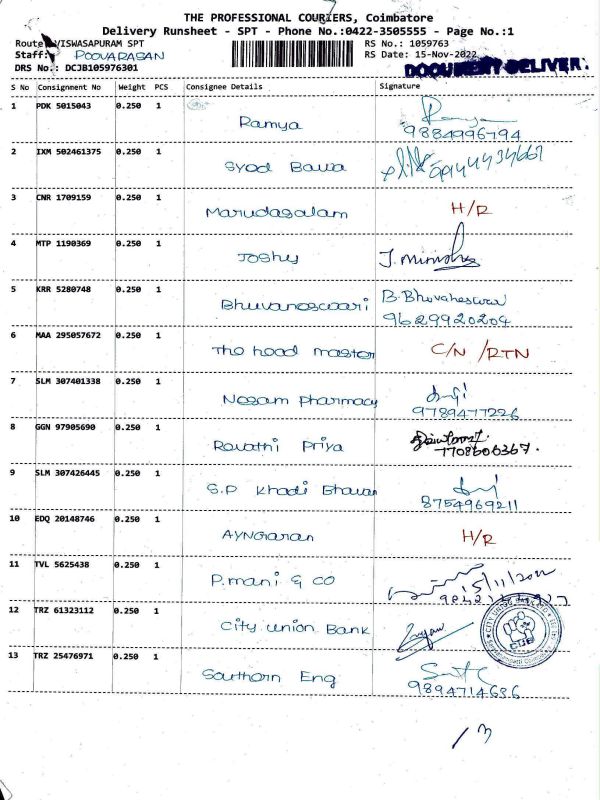 THE PROFESSIONAL COURIERS, Coimbatore
Delivery Runsheet - SPT - Phone No.:0422-3505555 - Page No.:1
Route: VISWASAPURAM SPT RS No.: 1059763
Staff: POOVARASAN RS Date: 15-Nov-2022
DRS No.: DCJB105976301 DOCUMENT DELIVER.
S No Consignment No Weight PCS Consignee Details Signature
1 PDK 5015043 0.250 1 Ramya Ramya
9884996794
2 IXM 502461375 0.250 1 Syed Bawa
3 CNR 1709159 0.250 1 Marudasalam H/R
4 MTP 1190369 0.250 1 Joshy J.
5 KRR 5280748 0.250 1 Bhuvaneswari B. Bhuvaheswari
9629920204
6 MAA 295057672 0.250 1 The head master C/N /RTN
7 SLM 307401338 0.250 1 Nesam Pharmacy
9789477226
8 GGN 97905690 0.250 1 Revathi Priya
7708606367.
9 SLM 307426445 0.250 1 S.P Khadi Bhavan
8754969211
10 EDQ 20148746 0.250 1 AYNGARAN H/R
11 TVL 5625438 0.250 1 P.mani & CO 15/11/2022
12 TRZ 61323112 0.250 1 City union Bank
CUB
13 TRZ 25476971 0.250 1 Southern Eng
9894714686
/ 3